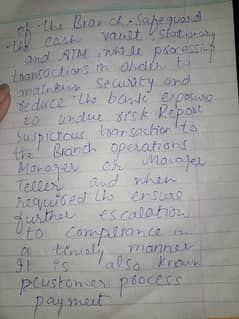 of the Branch. Safeguard
the cash vault, stationary
and ATM, while processing
transactions in order to
maintain security and
reduce the bank exposure
to undue risk Report
Suspicious transaction to
the Branch operations
Manager or Manager
Teller and when
required to ensure
further escalation
to compliance in
a timely manner
It is also known
customer process
payment